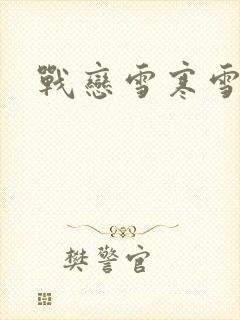 戰戀雪寒雪
樊警官